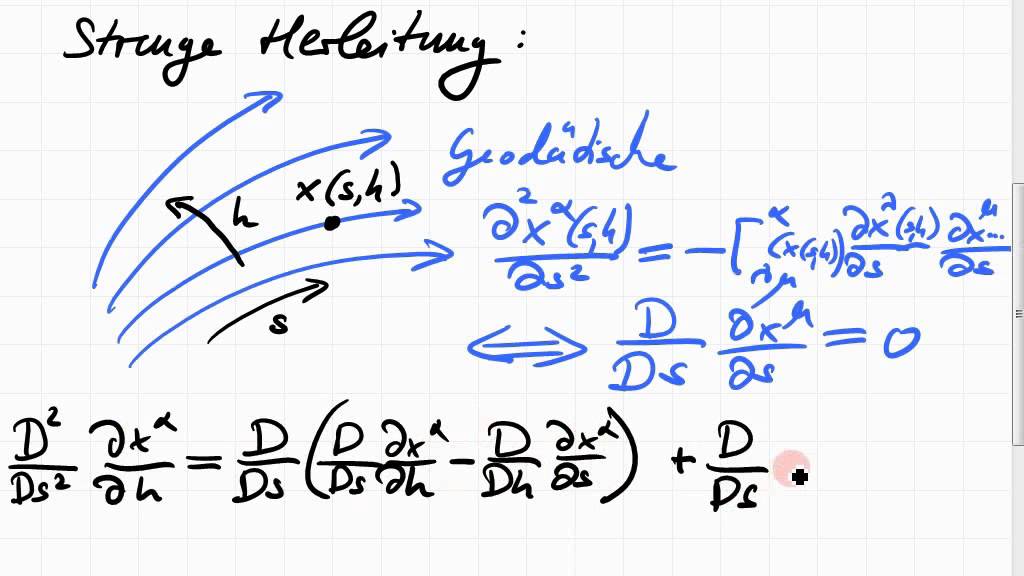 Strenge Herleitung:
Geodädische
x(s,h)
h
s
∂²x^α(s,h)/∂s² = -Γ^α_{λμ}(x(s,h)) ∂x^λ(s,h)/∂s ∂x^μ.../∂s
⟺ D/Ds ∂x^μ/∂s = 0
D²/Ds² ∂x^α/∂h = D/Ds (D/Ds ∂x^α/∂h - D/Dh ∂x^α/∂s) + D/Ds